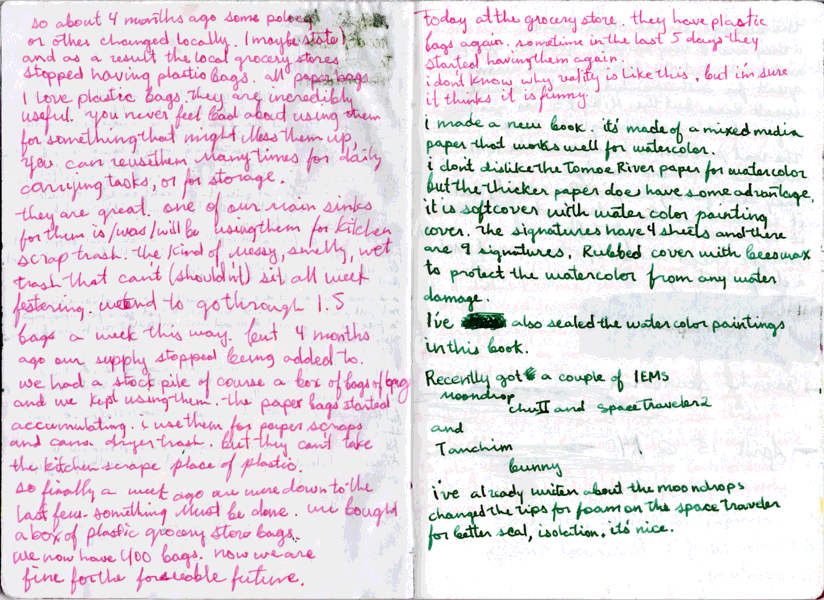 so about 4 months ago some polocy
or other changed locally. (maybe state)
and as a result the local grocery stores
stopped having plastic bags. all paper bags
I love plastic bags. they are incredibly
useful. you never feel bad about using them
for something that might Mess them up,
you can reuse them Many times for daily
carrying tasks, or for storage.
they are great. one of our main sinks
for them is/was/will be using them for kitchen
scrap trash. the kind of messy, smelly, wet
trash that can't (shouldn't) sit all week
festering. we tend to go through 1.5
bags a week this way. but 4 months
ago our supply stopped being added to.
we had a stock pile of course a box of bags of bag
and we kept using them. the paper bags started
accumulating. i use them for paper scraps
and cans. dryer trash. but they can't take
the kitchen scrape place of plastic.
so finally a week ago are were down to the
last few. something Must be done. we bought
a box of plastic grocery store bags.
we now have 400 bags. now we are
fine for the forseeable future.
today at the grocery store. they have plastic
bags again. sometime in the last 5 days they
started having them again.
i don't know why reality is like this, but i'm sure
it thinks it is funny.
i made a new book. it's made of a mixed media
paper that works well for watercolor.
i don't dislike the Tomoe River paper for watercolor
but the thicker paper does have some advantage.
it is softcover with water color painting
cover. the signatures have 4 sheets and there
are 9 signatures. Rubbed cover with beeswax
to protect the watercolor from any water
damage.
I've also sealed the water color paintings
in this book.
Recently got a couple of IEMS
moondrop
chu II and space Traveler 2
and
Tanchim
bunny
i've already writen about the moondrops
changed the tips for foam on the space traveler
for better seal, isolation. it's nice.